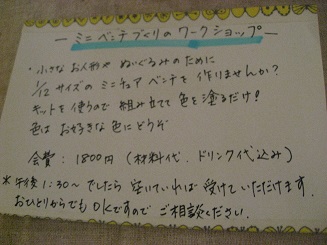 ー ミニ ベンチづくりの ワークショップ ー
・小さな お人形や ぬいぐるみのために
1/12 サイズの ミニチュア ベンチを 作りませんか?
キットを使うので 組み立てて 色を塗るだけ!
色は お好きな色にどうぞ
会費: 1800円 (材料代、ドリンク代込み)
*午後1:30~でしたら 空いていれば 受けて いただけます。
おひとりからでも OKですので ご相談ください。